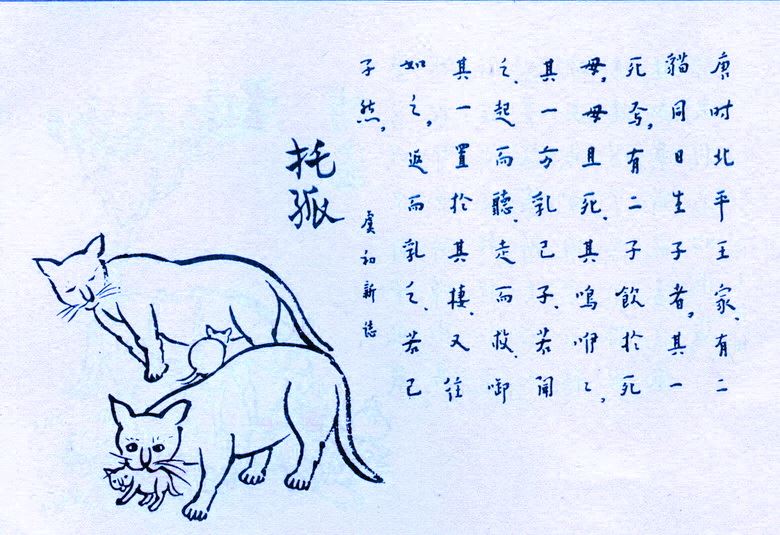 唐时北平王家、有二
貓同日生子者。其一
死焉。有二子飲於死
母。母且死、其鳴咿々。
其一方乳己子、若聞
之、起而聽、走而救、啣
其一置於其棲、又往
如之。返而乳之、若己
子然。
虞初新誌
托孤